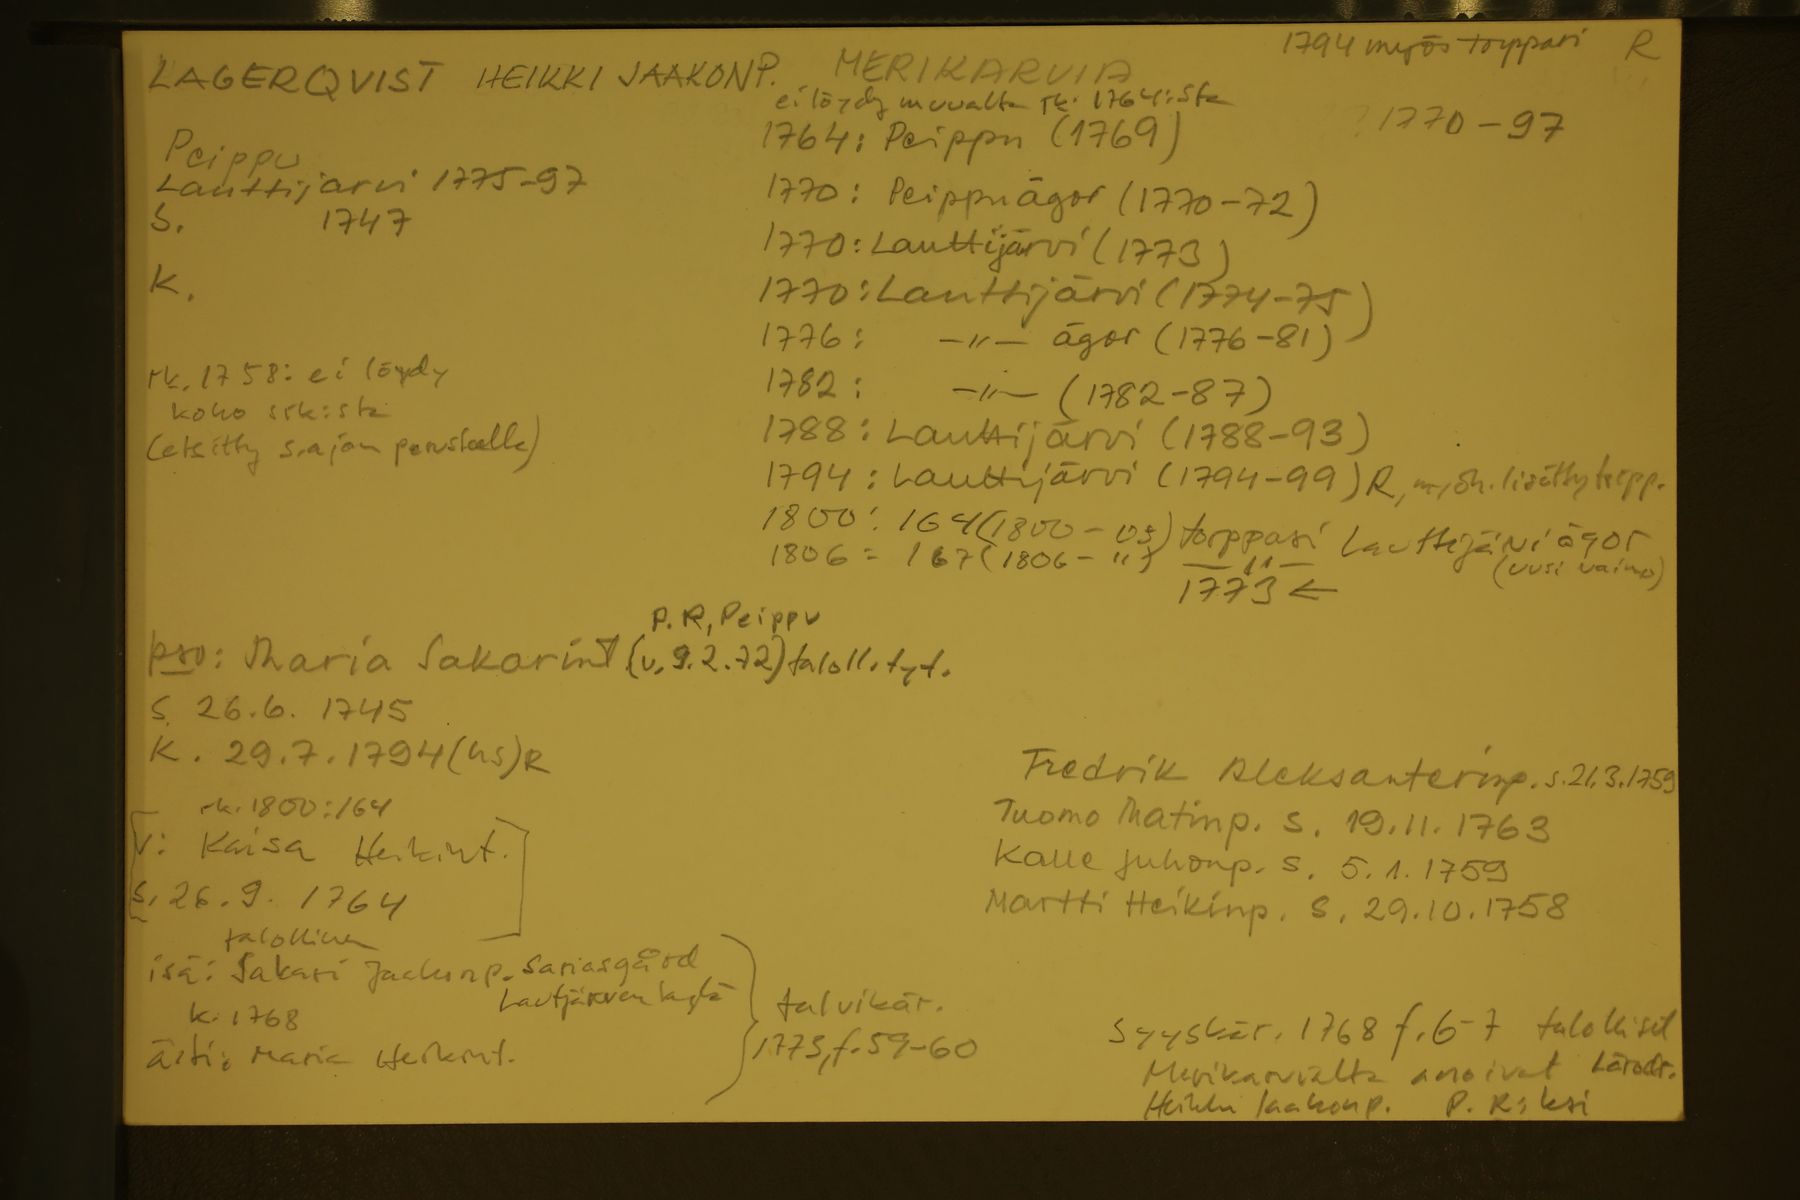 1794 myös torppari R
LAGERQVIST HEIKKI JAAKONP. MERIKARVIA
ei löydy muualta rk. 1764:sta
1770-97
1764: Peippu (1769)
Peippu
Lauttijärvi 1775-97
S. 1747
K.
1770: Peippuägor (1770-72)
1770: Lauttijärvi (1773)
1770: Lauttijärvi (1774-75)
1776: -"- ägor (1776-81)
1782: -"- (1782-87)
1788: Lauttijärvi (1788-93)
1794: Lauttijärvi (1794-99) R, myöh. lisätty torpp.
1800: 164 (1800-05) torppari Lauttijärvi ägor
1806 = 167 (1806- ") -"- (uusi vaimo)
1773 ←
rk. 1758: ei löydy
koko srk:sta
(etsitty s.ajan perusteella)
P.R, Peippu
pso: Maria Sakarint (v. 9.2.72) taloll. tyt.
S. 26.6. 1745
K. 29.7.1794 (hs) R
rk. 1800:164
v: Kaisa Heikint.
S. 26.9. 1764
Fredrik Aleksanterinp. s. 21.3.1759
Tuomo Matinp. S. 19.11.1763
Kalle Juhonp. S. 5.1.1759
Martti Heikinp. S. 29.10.1758
talollinen
isä: Sakari Jaakonp. Sariasgård
k. 1768
äiti: Maria Heikint.
talvikär.
1773, f. 59-60
Syyskär. 1768 f. 6-7 talolliset
Merikarvialta anoivat
Heikki Jaakonp. P. R:ksi